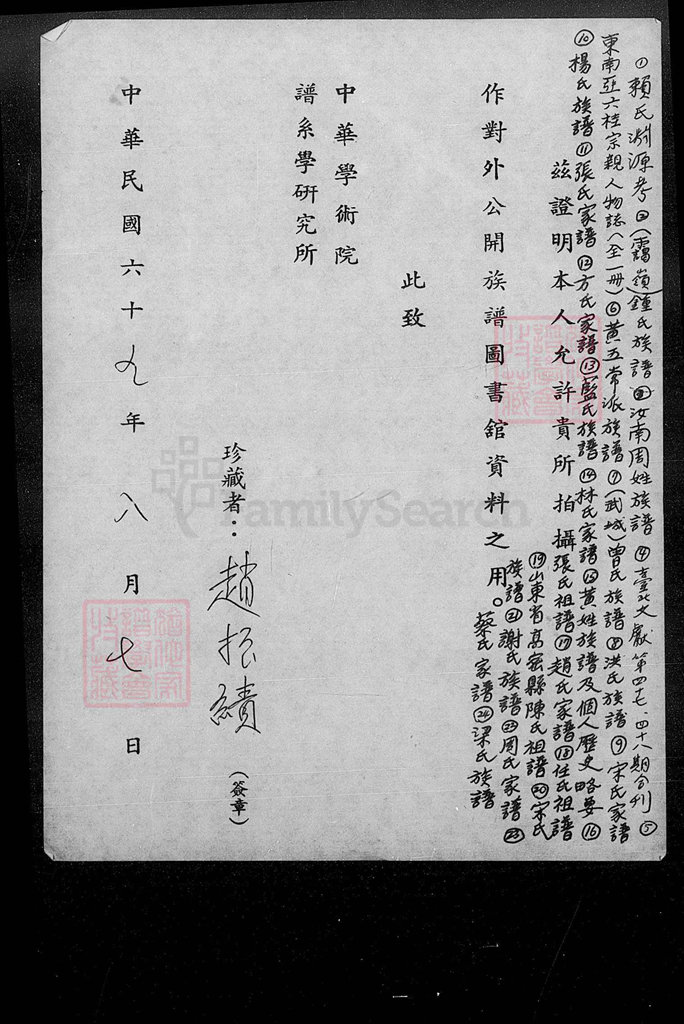 ①賴氏淵源考②(靄嶺)鍾氏族譜③汝南周姓族譜④臺北文獻第四七、四十八期合刊⑤
東南亞六桂宗親人物誌(全一冊)⑥黃五常派族譜⑦(武城)曾氏族譜⑧洪氏族譜⑨宋氏家譜
⑩楊氏族譜⑪張氏家譜⑫方氏家譜⑬藍氏族譜⑭林氏家譜⑮黃姓族譜及個人歷史略要⑯
茲證明本人允許貴所拍攝
張氏祖譜⑰趙氏家譜⑱任氏祖譜
⑲山東省高密縣陳氏祖譜⑳宋氏
族譜㉑謝氏族譜㉒周氏家譜㉓
作對外公開族譜圖書舘資料之用。
蔡氏家譜㉔梁氏族譜
此致
中華學術院
譜系學研究所
珍藏者:趙振績(簽章)
中華民國六十九年八月七日
FamilySearch